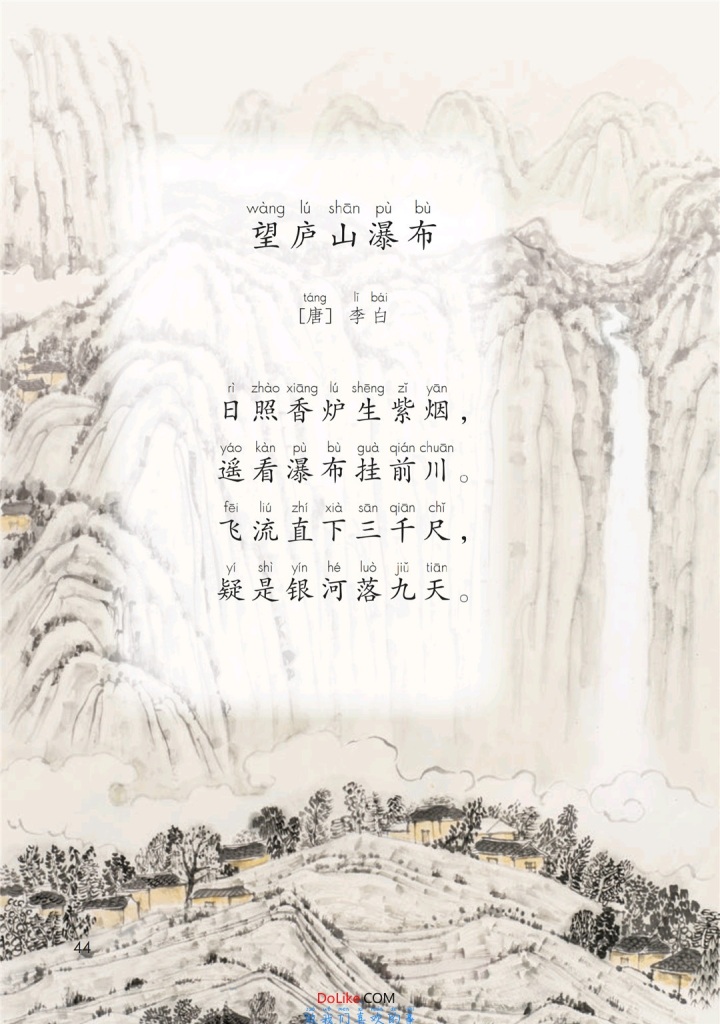 wàng lú shān pù bù
望庐山瀑布
táng lǐ bái
[唐] 李白
rì zhào xiāng lú shēng zǐ yān
日照香炉生紫烟，
yáo kàn pù bù guà qián chuān
遥看瀑布挂前川。
fēi liú zhí xià sān qiān chǐ
飞流直下三千尺，
yí shì yín hé luò jiǔ tiān
疑是银河落九天。
44
DoLike.COM